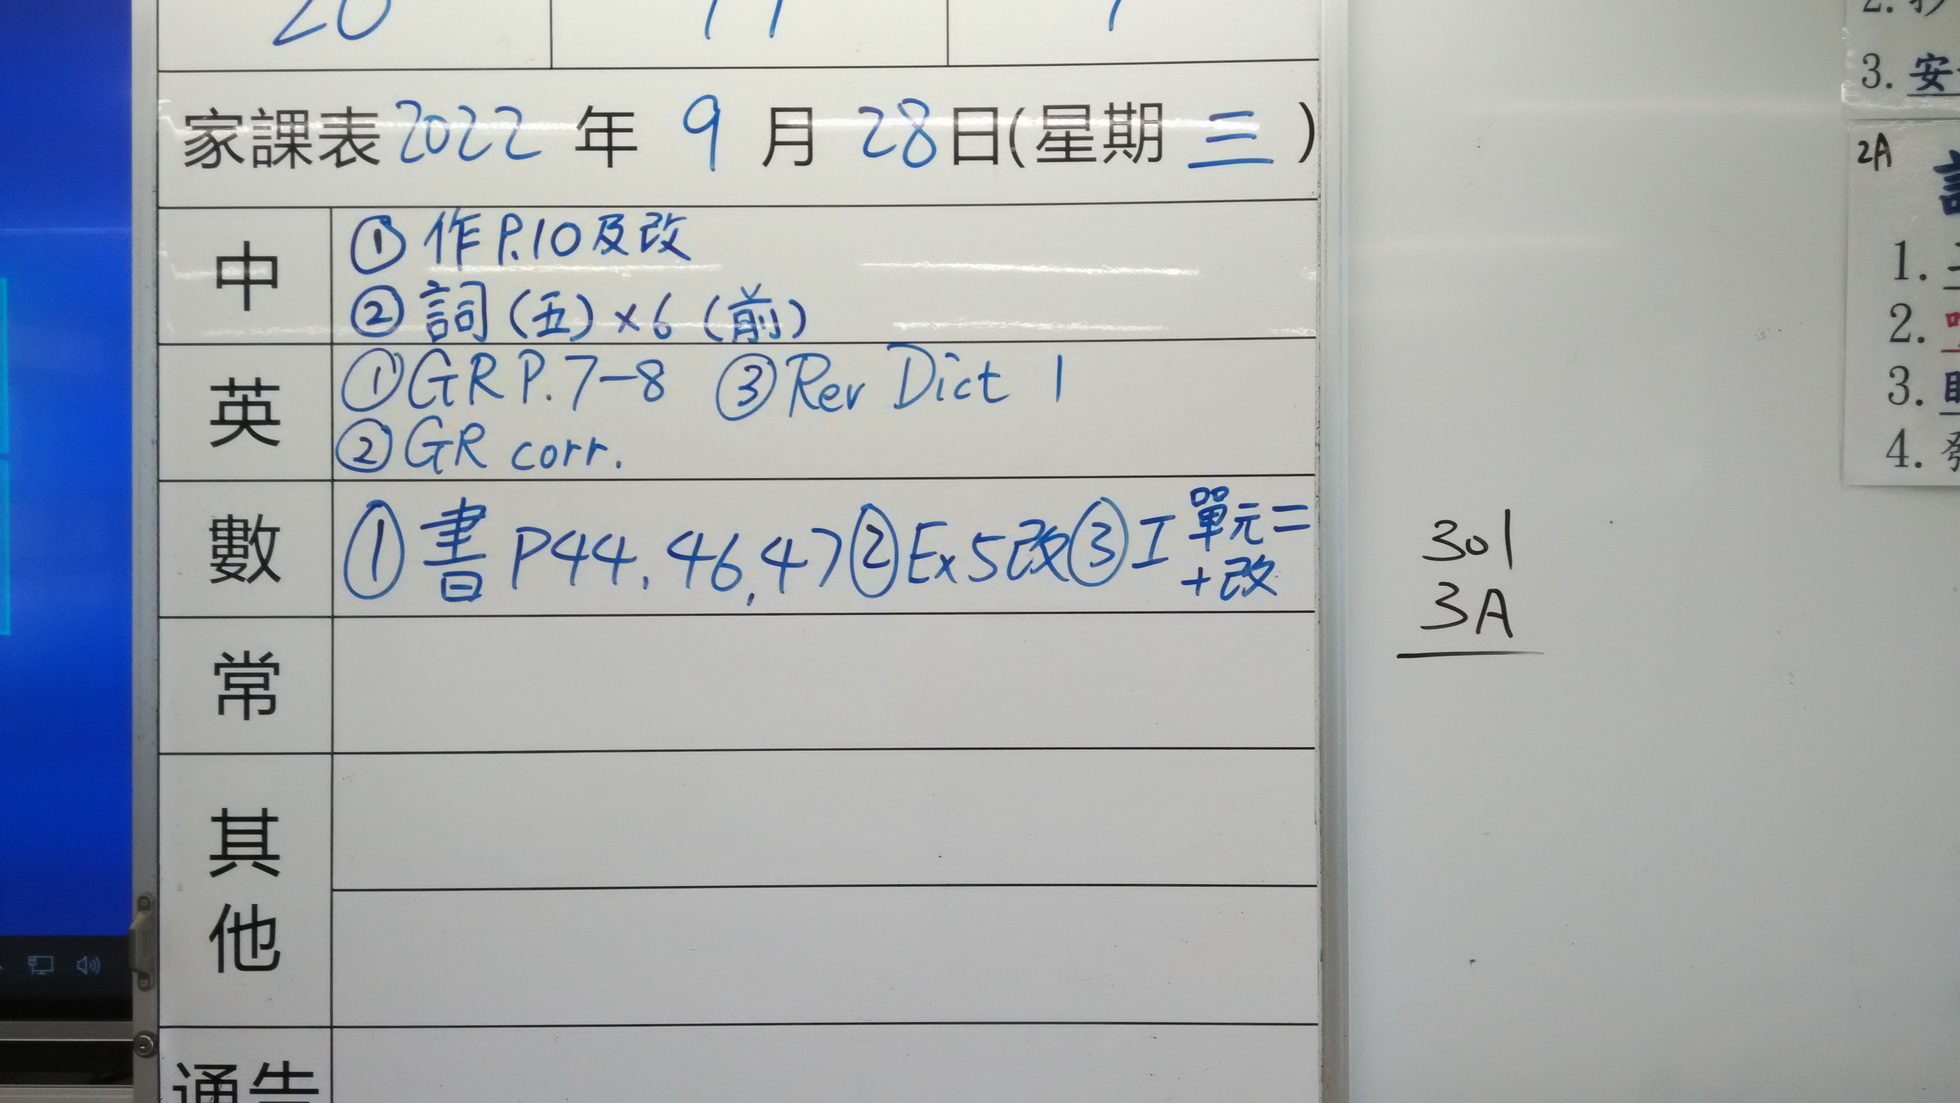 家課表 2022 年 9 月 28 日(星期 三 )
中
① 作 P.10 及改
② 詞 (五) ×6 (前)
英
① GR P.7-8 ③ Rev Dict 1
② GR corr.
數
① 書 P44, 46, 47 ② Ex 5 改 ③ I 單元二
+改
常
其
他
通告
301
3A
3. 安
2A
1.
2.
3.
4.